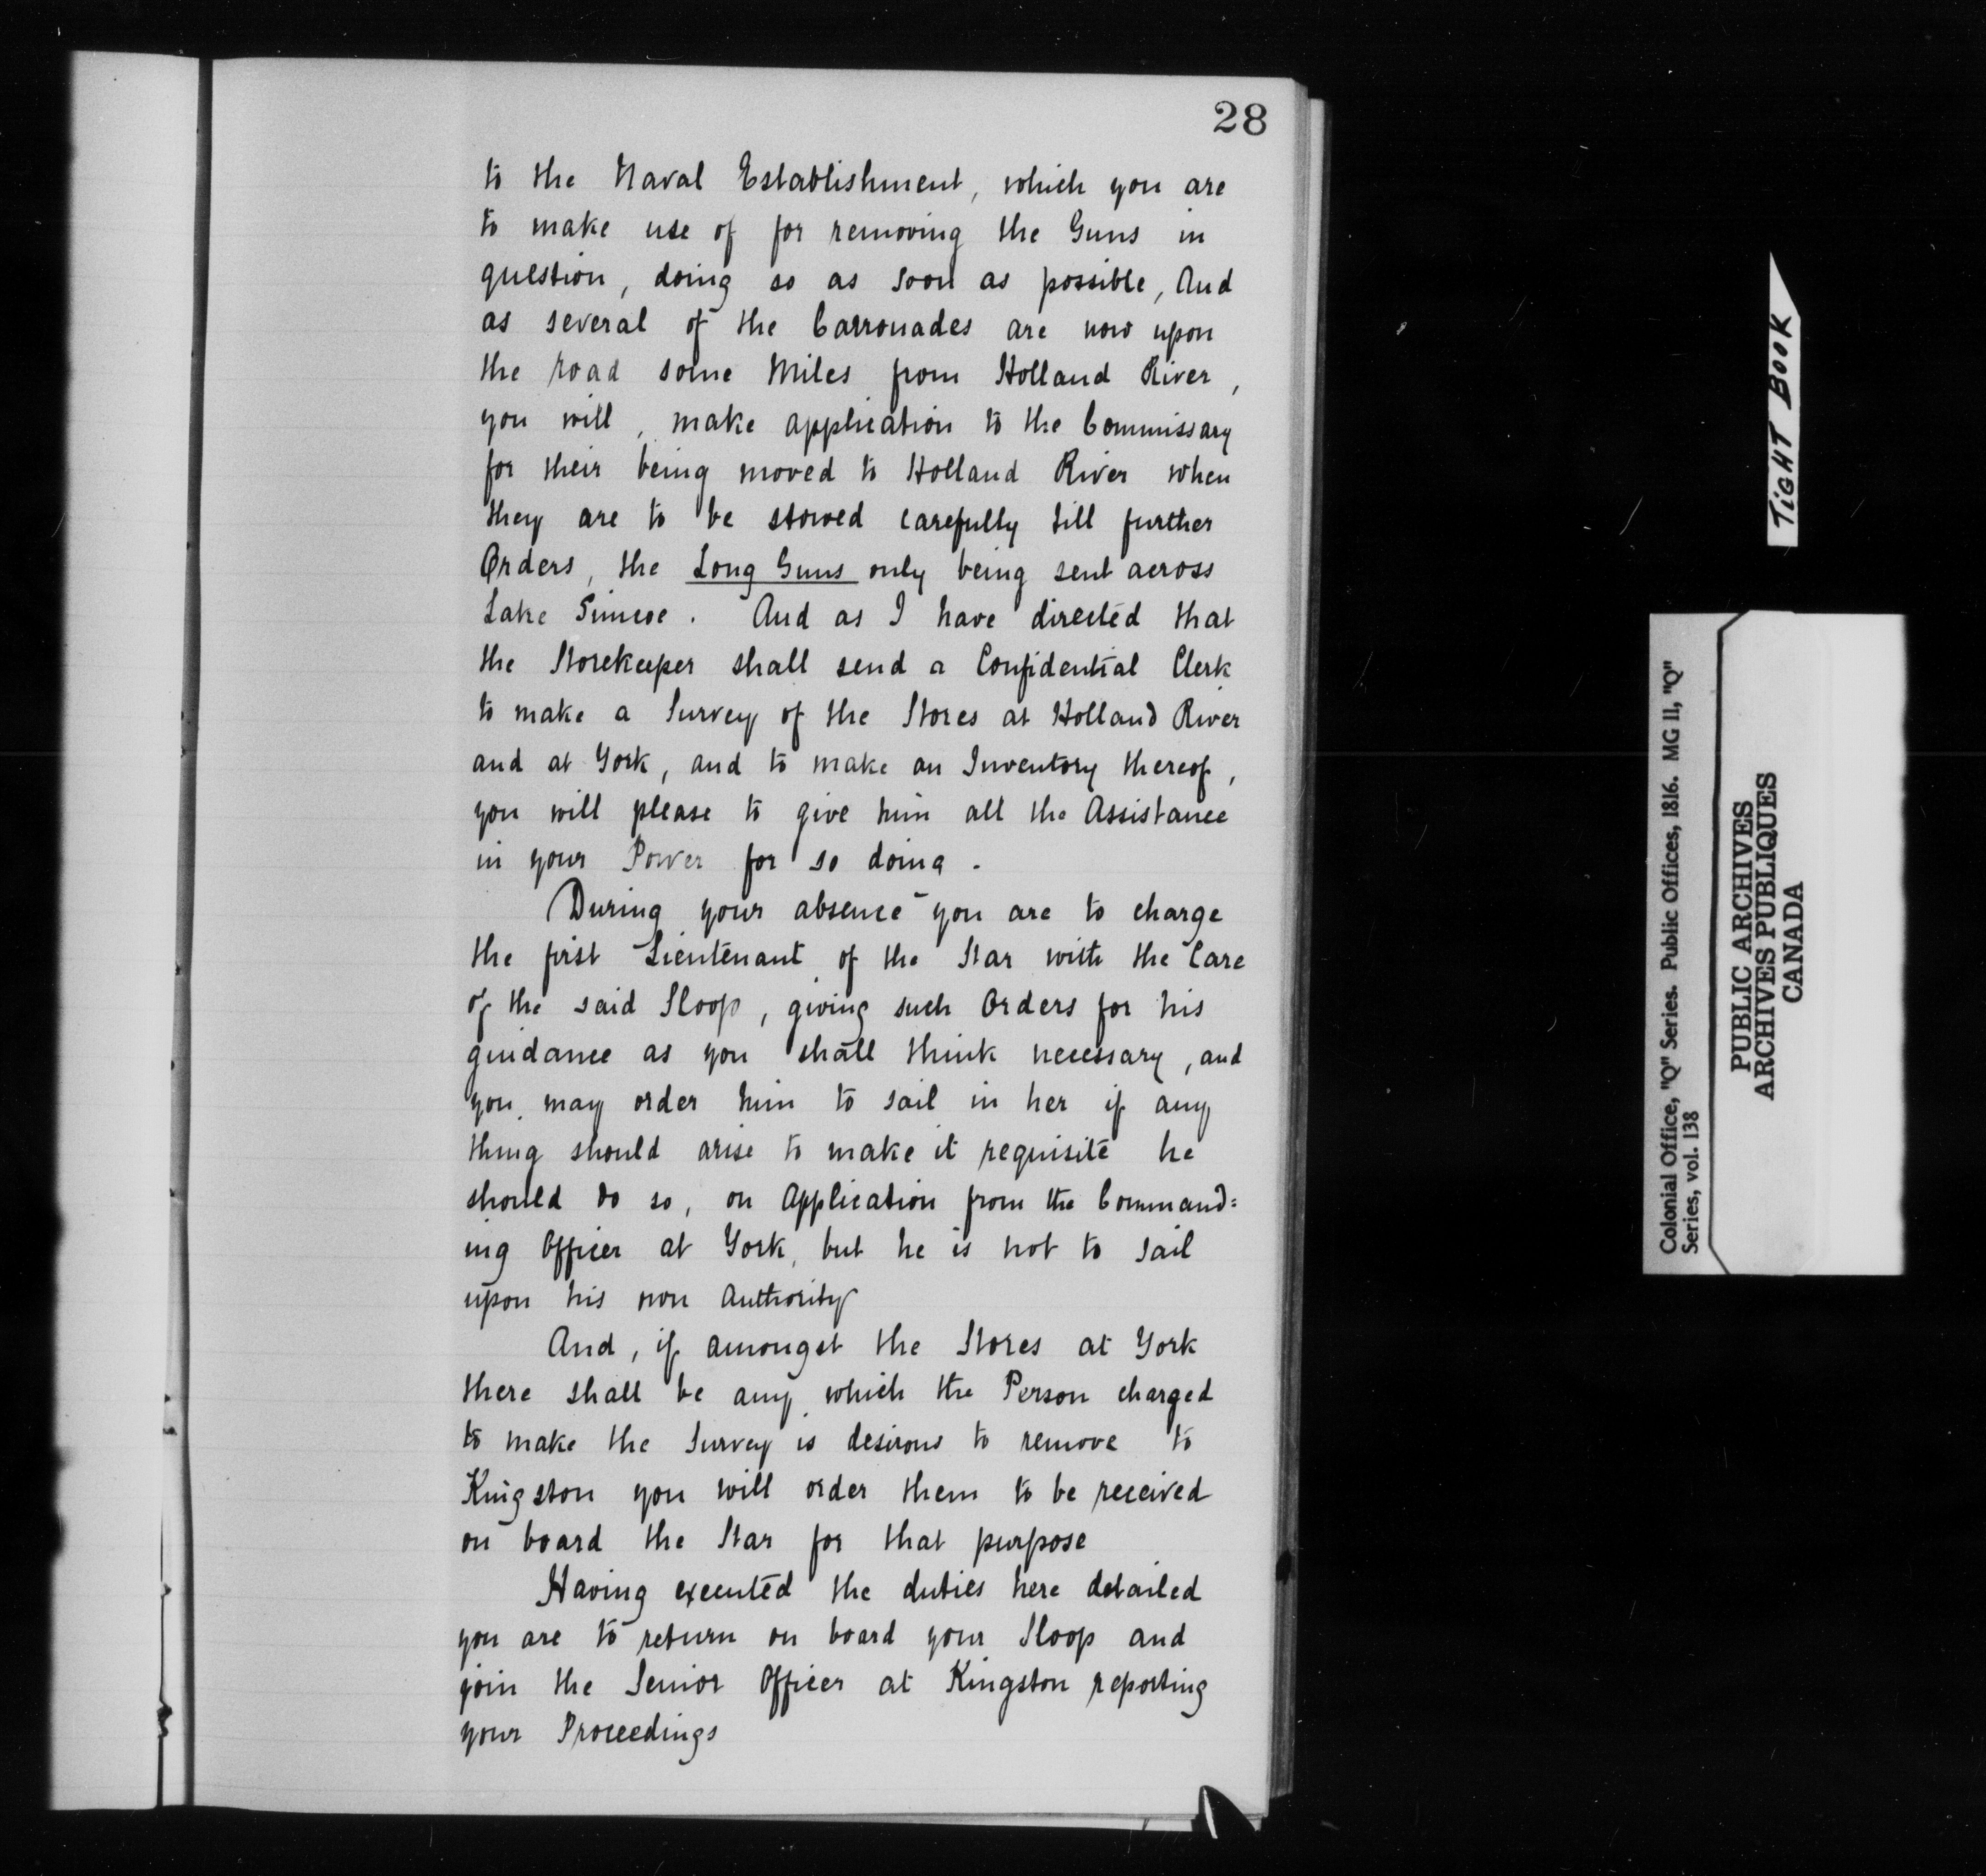 28
to the Naval Establishment, which you are
to make use of for removing the Guns in
question, doing so as soon as possible, And
as several of the Carronades are now upon
the road some Miles from Holland River,
you will, make application to the Commissary
for their being moved to Holland River when
they are to be stowed carefully till further
Orders, the Long Guns only being sent across
Lake Simcoe. And as I have directed that
the Storekeeper shall send a Confidential Clerk
to make a Survey of the Stores at Holland River
and at York, and to make an Inventory thereof,
you will please to give him all the Assistance
in your Power for so doing.
During your absence you are to charge
the first Lieutenant of the Star with the Care
of the said Sloop, giving such Orders for his
guidance as you shall think necessary, and
you may order him to sail in her if any
thing should arise to make it requisite he
should do so, on Application from the Command=
ing Officer at York, but he is not to sail
upon his own Authority
And, if amongst the Stores at York
there shall be any which the Person charged
to make the Survey is desirous to remove to
Kingston you will order them to be received
on board the Star for that purpose
Having executed the duties here detailed
you are to return on board your Sloop and
join the Senior Officer at Kingston reporting
your Proceedings
TIGHT BOOK
Colonial Office, "Q" Series. Public Offices, 1816. MG 11, "Q"
Series, vol. 138
PUBLIC ARCHIVES
ARCHIVES PUBLIQUES
CANADA